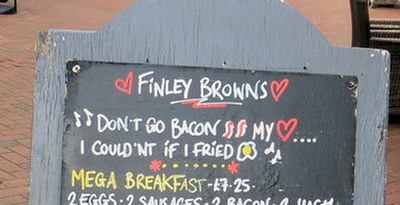 FINLEY BROWNS
DON'T GO BACON MY ....
I COULD'NT IF I FRIED
MEGA BREAKFAST - £7.25 -
2 EGGS · 2 SAUSAGES · 2 BACON · 2 HASH